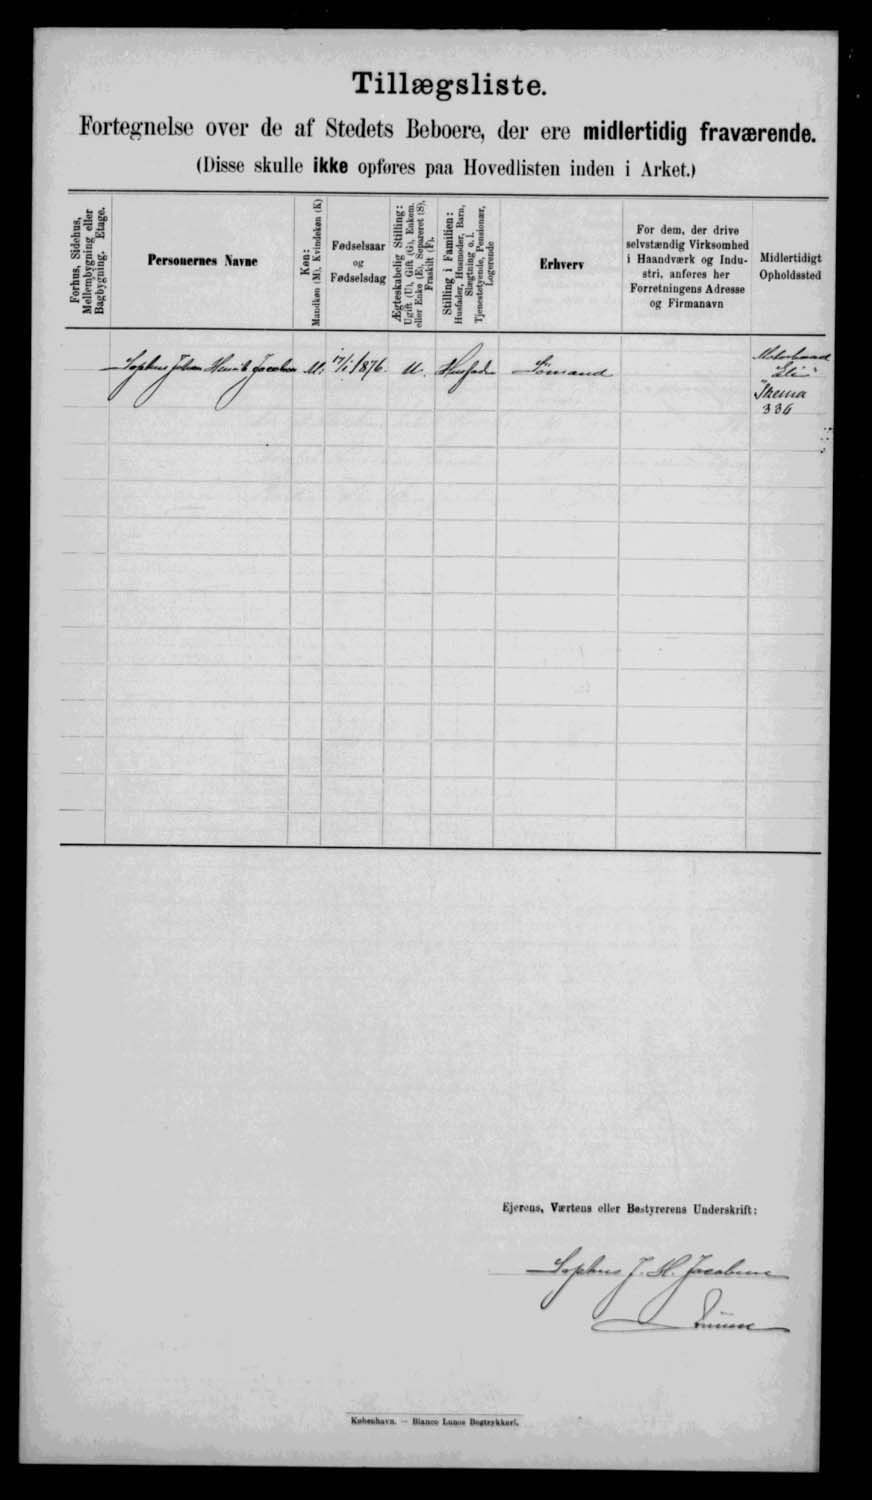 Tillægsliste.
Fortegnelse over de af Stedets Beboere, der ere midlertidig fraværende.
(Disse skulle ikke opføres paa Hovedlisten inden i Arket.)
Forhus, Sidehus,
Mellembygning eller
Bagbygning. Etage.
Personernes Navne
Køn:
Mandkøn (M), Kvindekøn (K)
Fødselsaar
og
Fødselsdag
Ægteskabelig Stilling:
Ugift (U), Gift (G), Enkem.
eller Enke (E), Separeret (S),
Fraskilt (F).
Stilling i Familien:
Husfader, Husmoder, Barn,
Slægtning o. l.
Tjenestetyende, Pensionær,
Logerende
Erhverv
For dem, der drive
selvstændig Virksomhed
i Haandværk og Indu-
stri, anføres her
Forretningens Adresse
og Firmanavn
Midlertidigt
Opholdssted
Sophus Johan Henrik Jacobsen M. 17/1 1876. U. Husfader Sömand
Skema
336
Ejerens, Værtens eller Bestyrerens Underskrift:
Sophus J. H. Jacobsen
København. — Bianco Lunos Bogtrykkeri.